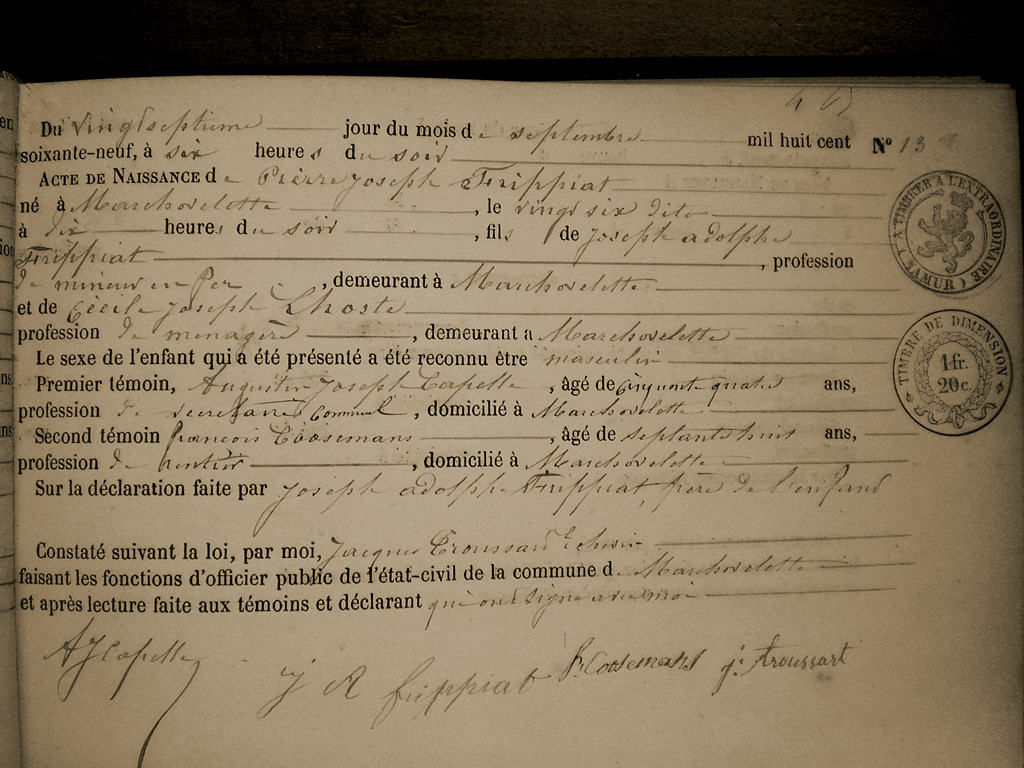 Du vingtseptieme jour du mois de septembre mil huit cent N° 13
soixante-neuf, à six heures du soir
ACTE DE NAISSANCE de Pierre Joseph Frippiat
né à Marchovelette, le vingt six dito
à dix heures du soir, fils de Joseph adolphe
Frippiat, profession
de mineur en Fer, demeurant à Marchovelette
et de Cécile Joseph Lhoste
profession de menagère, demeurant a Marchovelette
Le sexe de l'enfant qui a été présenté a été reconnu être masculin
Premier témoin, Augustin Joseph Capelle, âgé de cinquante quatre ans,
profession de secretaire communal, domicilié à Marchovelette
Second témoin francois Coosemans, âgé de septante huit ans,
profession de rentier, domicilié à Marchovelette
Sur la déclaration faite par Joseph adolphe Frippiat, père de l'enfant
Constaté suivant la loi, par moi, Jacques Troussart Echevin
faisant les fonctions d'officier public de l'état-civil de la commune de Marchovelette
et après lecture faite aux témoins et déclarant qui ont signé avec moi
AJCapelle
J A frippiat
F. Coosemans
j. troussart
A TIMBRER A L'EXTRAORDINAIRE
(NAMUR)
TIMBRE DE DIMENSION
1 fr.
20 c.